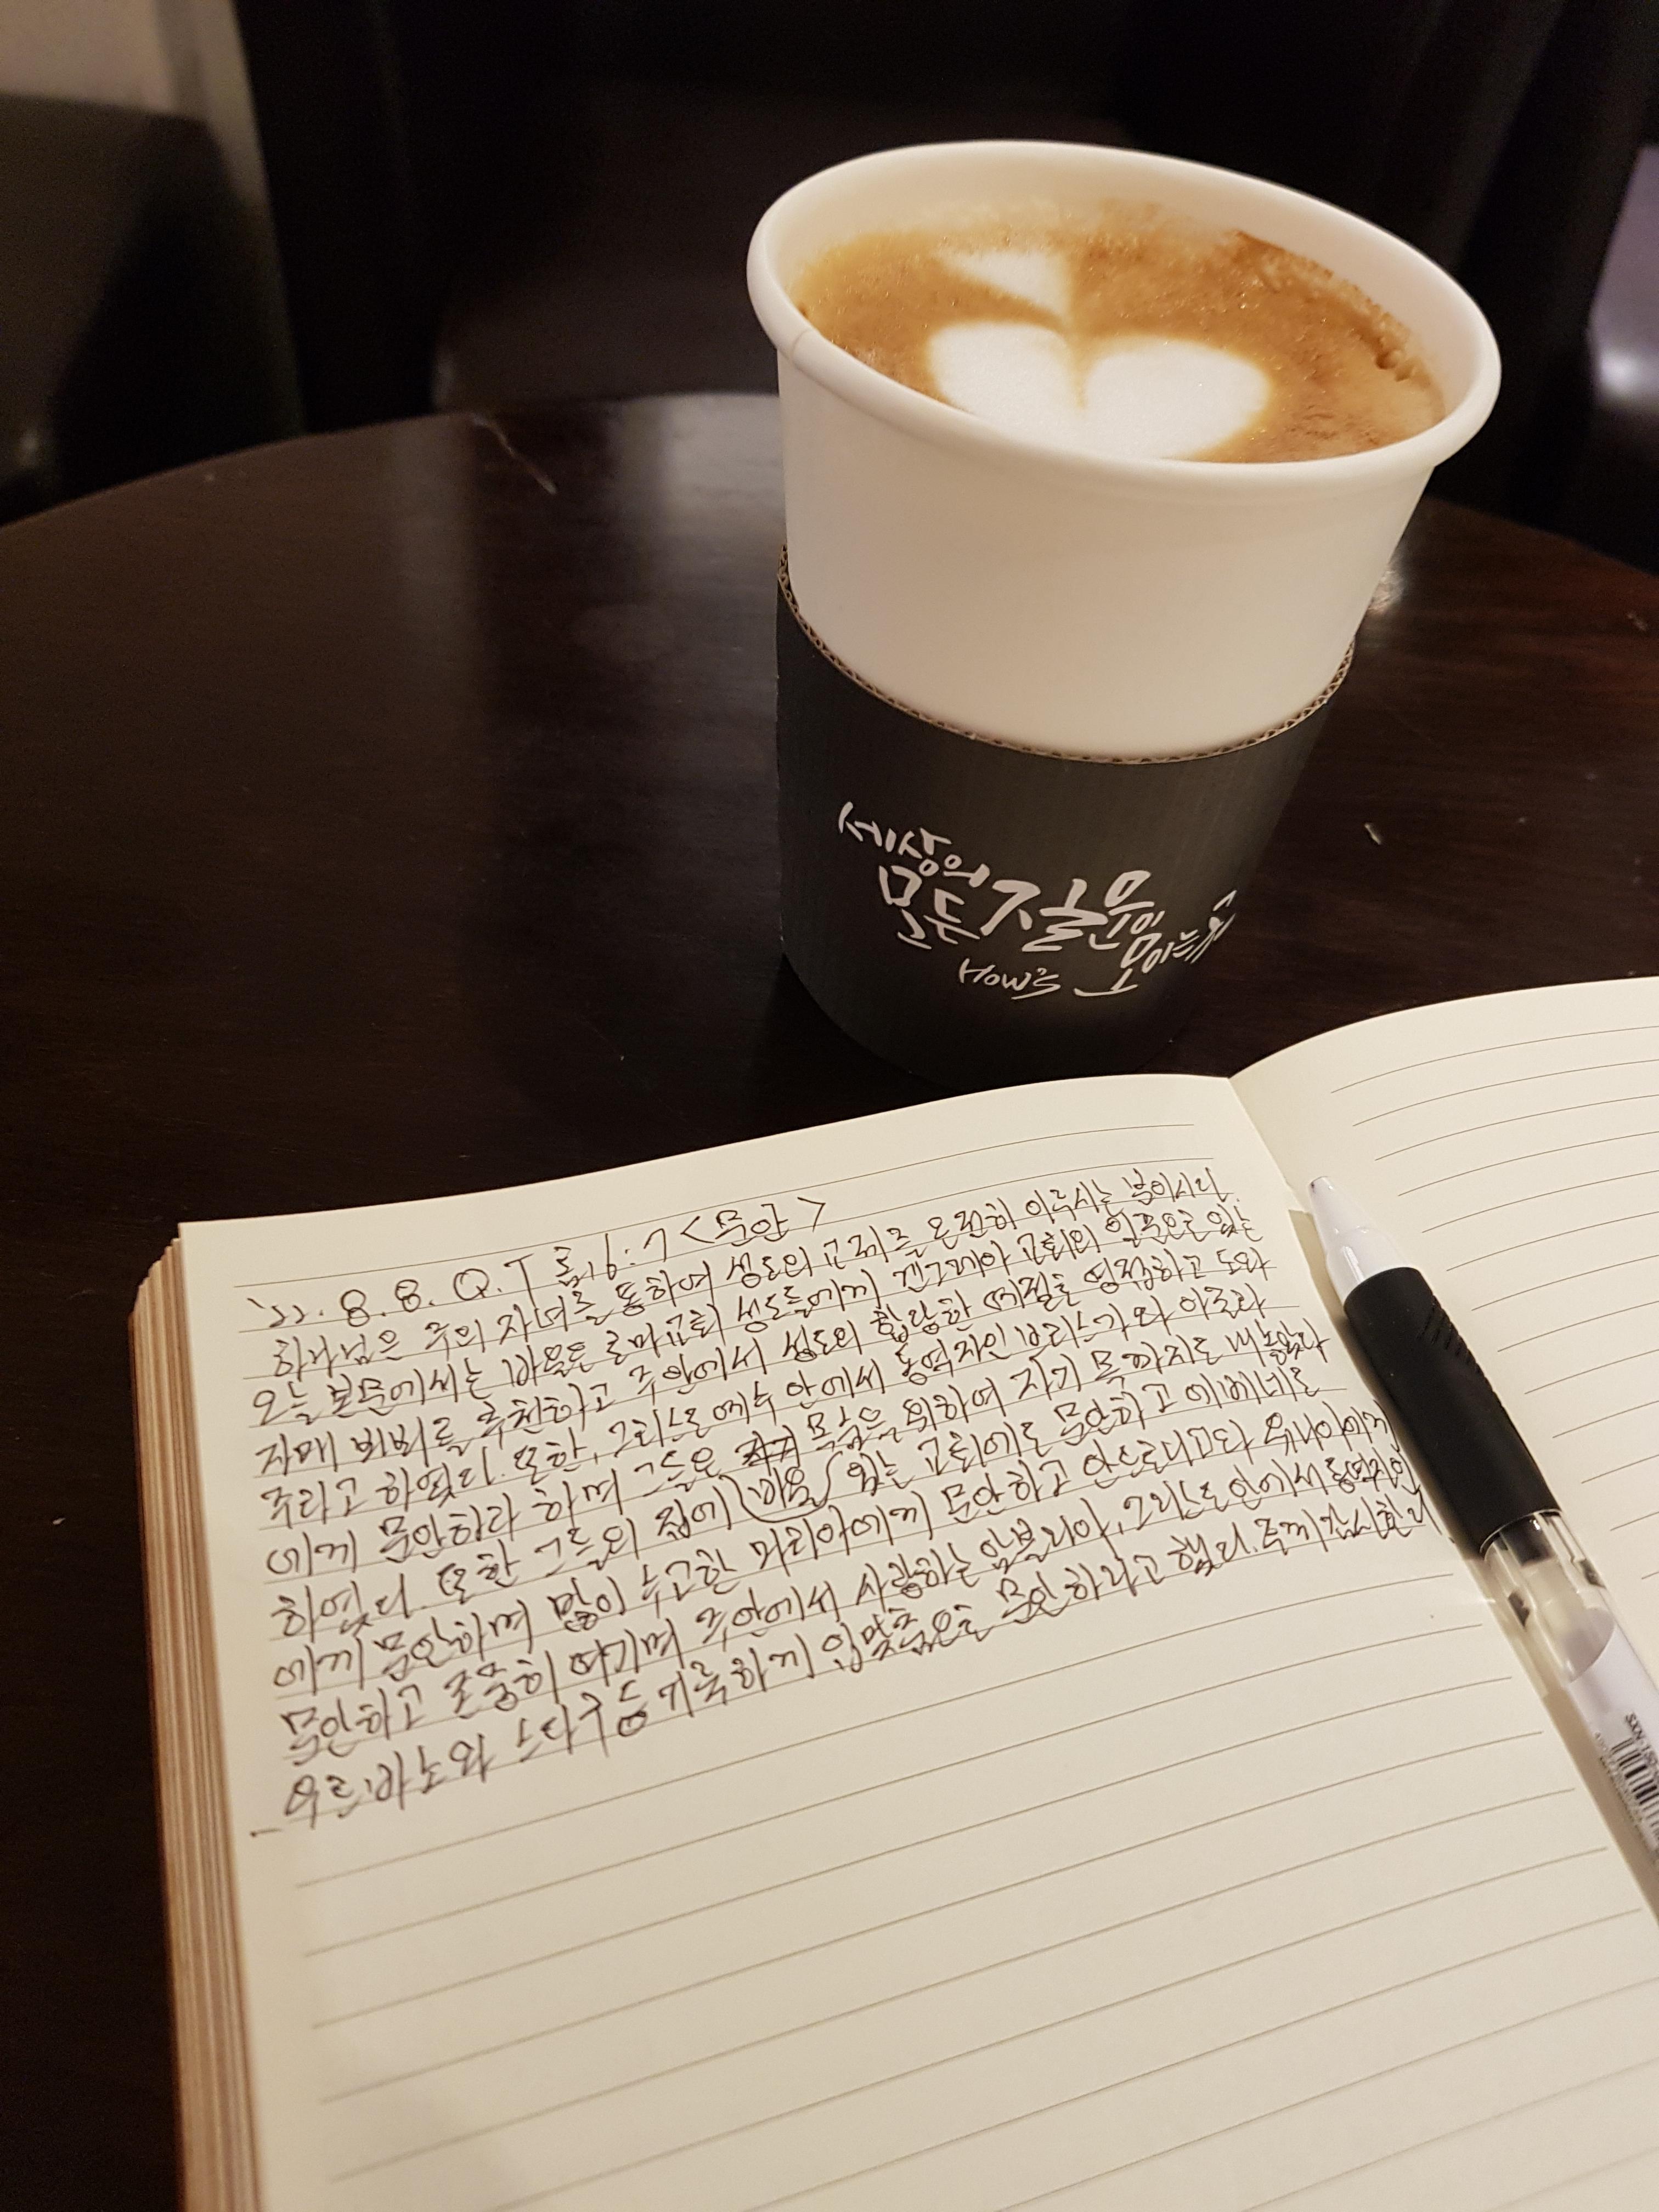 세상의
모든 질문이
모이는 곳
How's
'22. 8. 8. Q.T 롬16: <문안>
하나님은 주의 자녀를 통하여 성도의 교제를 온전히 이루시는 분이시다.
오늘 본문에서는 바울은 로마교회 성도들에게 겐그레아 교회의 일꾼으로 있는
자매 뵈뵈를 추천하고 주안에서 성도의 합당한 예절로 영접하고 도와
주라고 하였다. 또한, 그리스도 예수 안에서 동역자인 브리스가와 아굴라
에게 문안하라 하며 그들은 목숨을 위하여 자기 목까지도 내놓았다
하였다. 또한 그들의 집에 (바울) 있는 교회에도 문안하고 에베네도
에게 문안하며 많이 수고한 마리아에게 문안하고 안드로니고와 유니아에게
문안하고 존중히 여기며 주안에서 사랑하는 암블리아, 그리스도 안에서 동역자인
우르바노와 스다구등 거룩하게 입맞춤으로 문안하라고 했다. 주께 감사한다
SXN-150